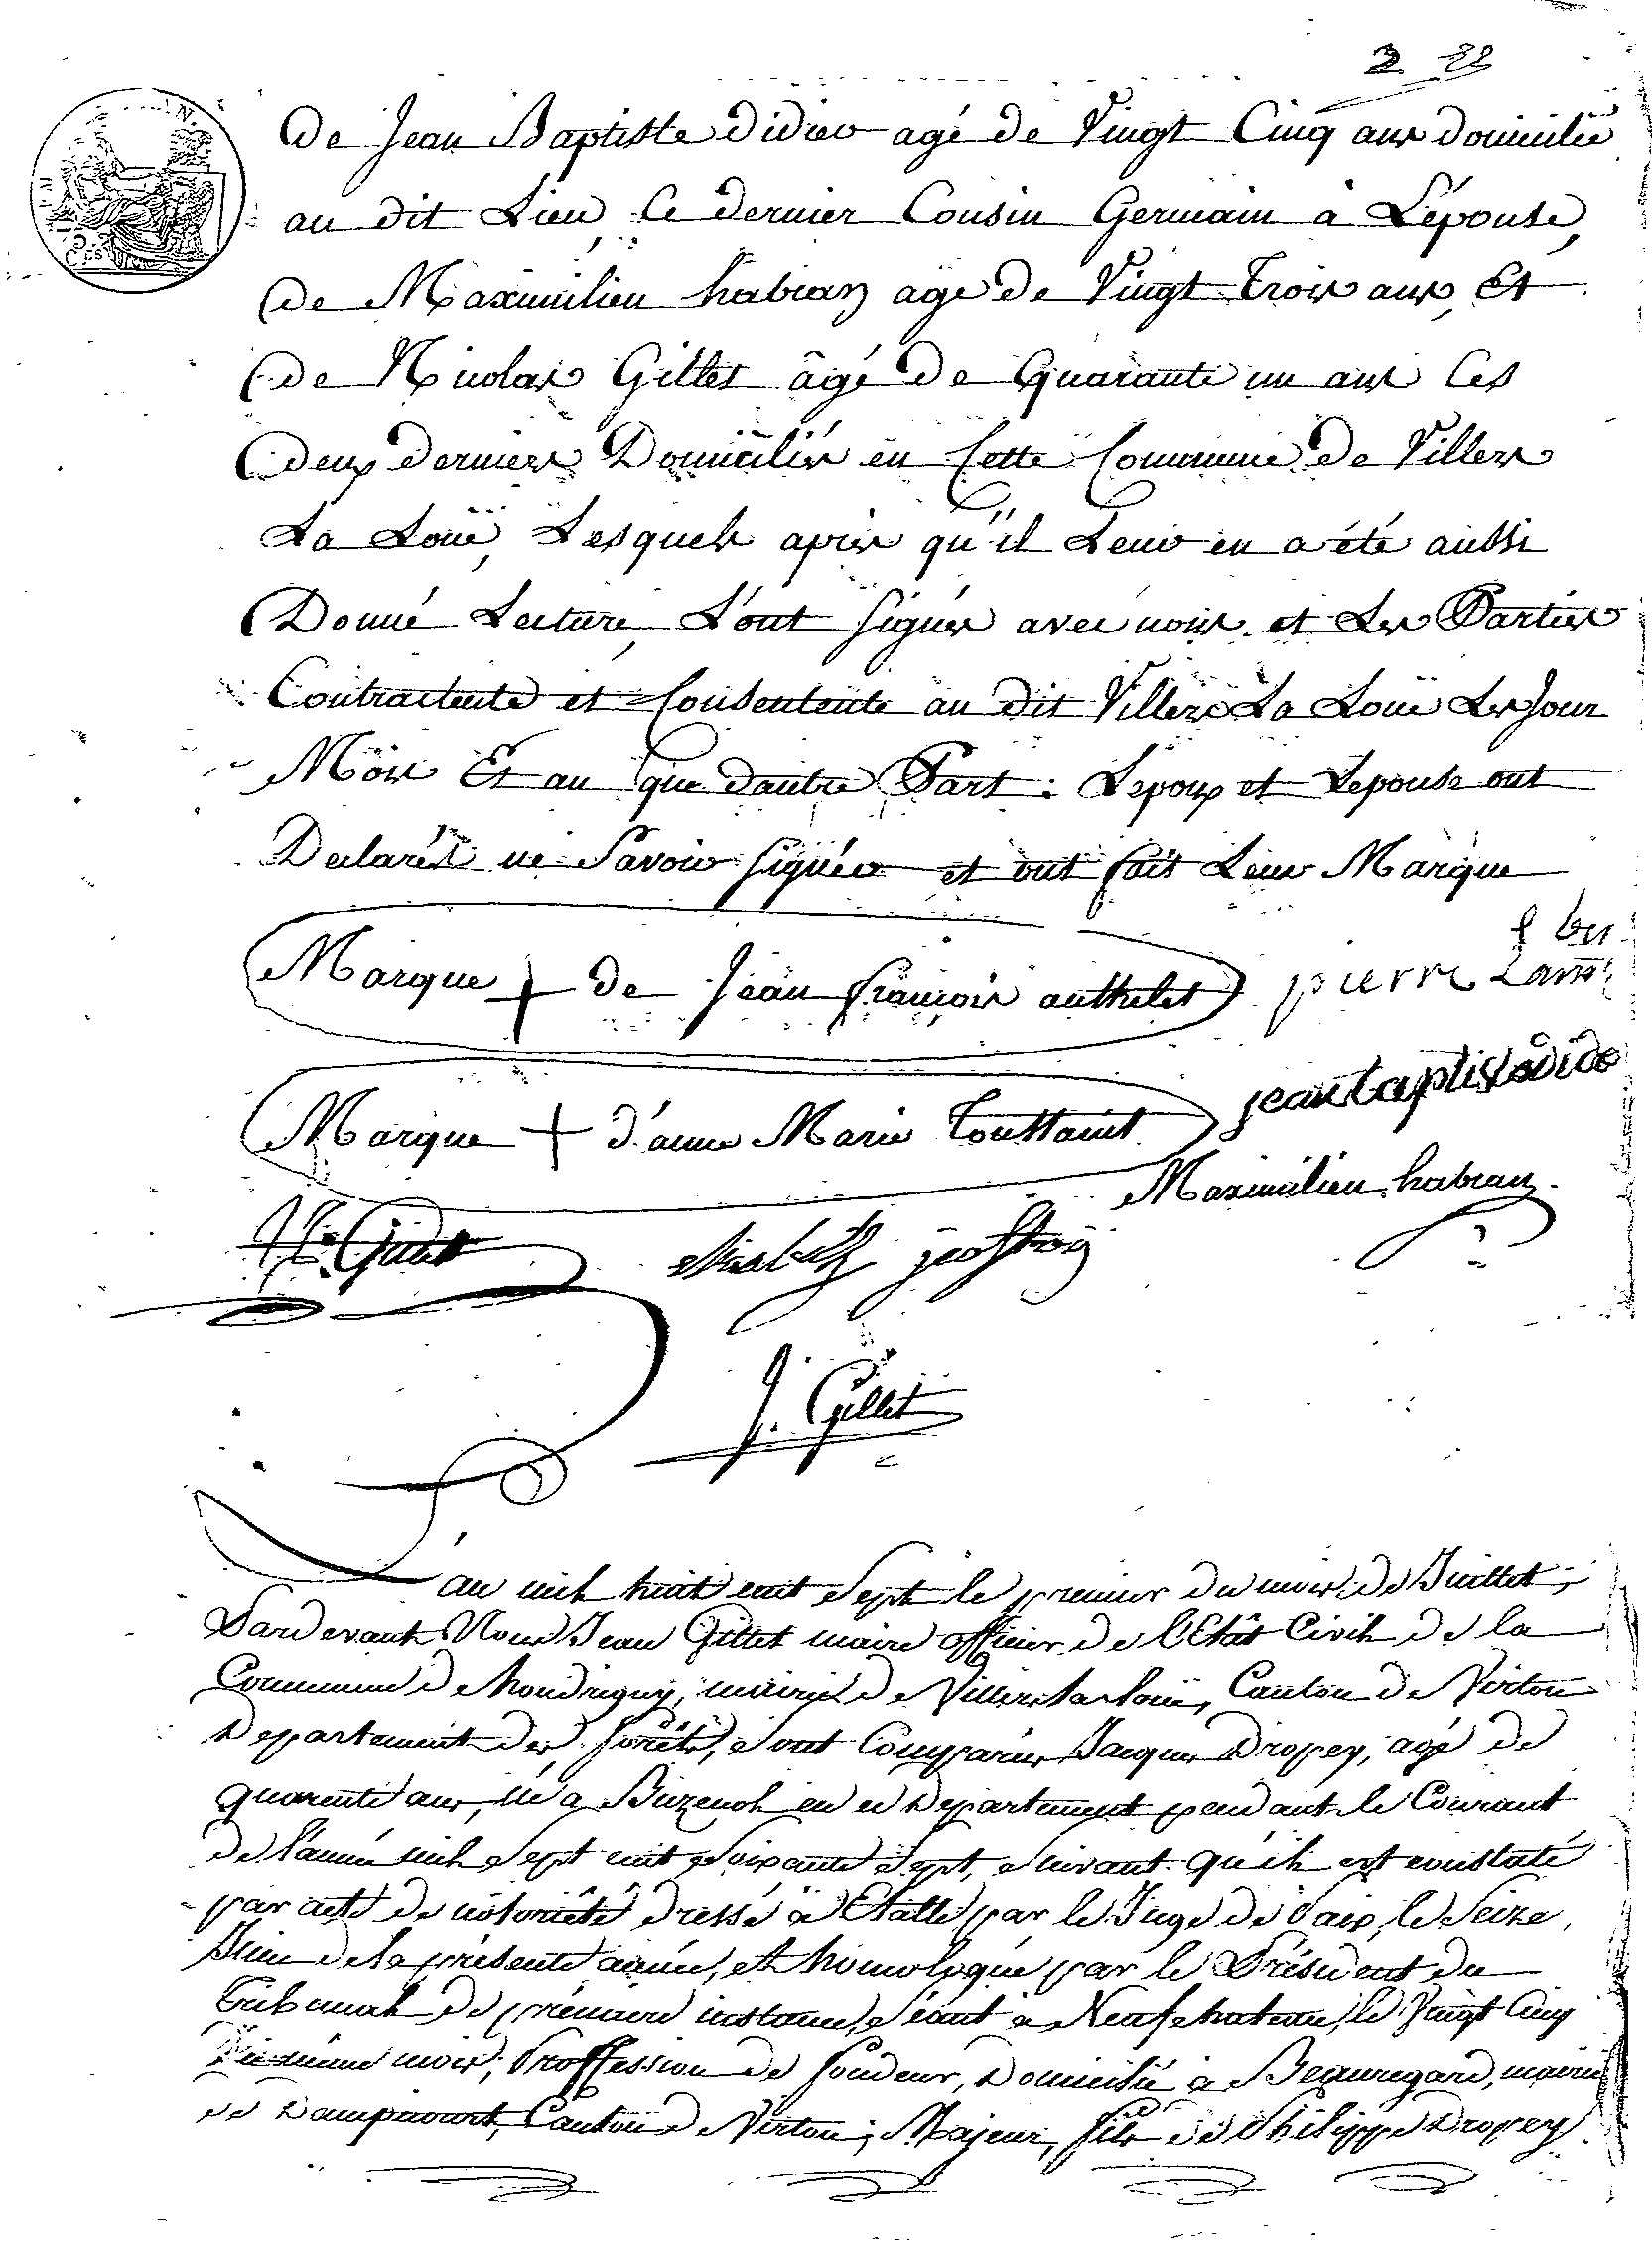 2 23
De Jean Baptiste Didier agé de Vingt Cinq ans domicilié
au dit Lieu, Ce dernier Cousin Germain à L'épouse,
de Maximilien habran age de Vingt Trois ans, Et
de Nicolas Gilles âgé De Quarante un ans Ces
deux derniers Domiciliés en Cette Commune De Villers
La Loüe, Lesquels après qu'il Leur en a été aussi
Donné Lecture, L'ont signés avec nous et Les Parties
Contractente et Consentente au dit Villers La Loüe Les Jour
Mois Et an que dautre Part : Lepoux et Lepouse ont
Declarés ne Savoir signer et ont fait Leur Marque
Marque + de Jean françois authelet
pierre Lam
jean baptiste didie
Marque + d'anne Marie Toussaint
Maximilien habran
N. Gilles
geoffroy
J. Gillet
L'an mil huit cent Sept le premier du mois de Juillet,
Pardevant Nous Jean Gillet maire officier de l'Etât Civil de la
Commune de houdrigny, mairie de Villers la loüe, Canton de Virton
Departement des forêts, sont Comparus Jacques Dropsy, agé de
quarente ans, né a Buzenol en ce Departement pendant le Courant
de l'année mil Sept cent Soixante Sept, Suivant qu'il est constaté
par acte de nôtoriêtê dressé à Etalle par le Juge de Paix, le Seize
Juin de la présente année, et homologué par le Président du
Tribunal de prémiere instance, séant à Neufchateau, le Vingt Cinq
du même mois; Proffession de fondeur, Domicilié à Beauregard, mairie
de Dampicourt, Canton de Virton; Majeur, fils de Philippe Dropsy